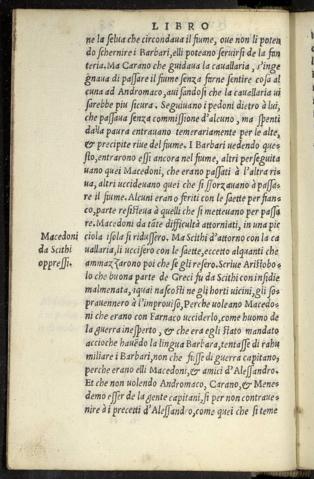 LIBRO
ne la selua che circondaua il fiume, oue non li poten
do schernire i Barbari, elli poteano seruirsi de la fan
teria. Ma Carano che guidaua la cauallaria, s'inge
gnaua di passare il fiume senza farne sentire cosa al
cuna ad Andromaco, auisandosi che la cauallaria ui
sarebbe piu sicura. Seguiuano i pedoni dietro à lui,
che passaua senza commissione d'alcuno, ma spenti
dalla paura entrauano temerariamente per le alte,
& precipite riue del fiume. I Barbari uedendo que=
sto, entrarono essi ancora nel fiume, altri perseguita
uano quei Macedoni, che erano passati à l'altra ri=
ua, altri uccideuano quei che si sforzauano à passa=
re il fiume. Alcuni erano feriti con le saette per fian=
co, parte resisteua à quelli che si metteuano per passa
re. Macedoni da tãte difficultà attorniati, in una pic
Macedoni
da Scithi
oppressi.
ciola isola si ridussero. Ma Scithi d'attorno con la ca
uallaria, li uccisero con le saette, eccetto alquanti che
ammazzarono poi che se gli resero. Scriue Aristobo=
lo che buona parte de Greci fu da Scithi con insidie
malmenata, iquai nascosti ne gli horti uicini, gli so=
prauennero à l'improuiso. Perche uoleano Macedo=
ni che erano con Farnaco ucciderlo, come huomo de
la guerra inesperto, & che era egli stato mandato
accioche hauẽdo la lingua Barbara, tentasse di rahu
miliare i Barbari, non che fusse di guerra capitano;
perche erano elli Macedoni, & amici d'Alessandro.
Et che non uolendo Andromaco, Carano, & Mene=
demo esser de la gente capitani, si per non contraue=
nire à i precetti d'Alessandro, come quei che si teme